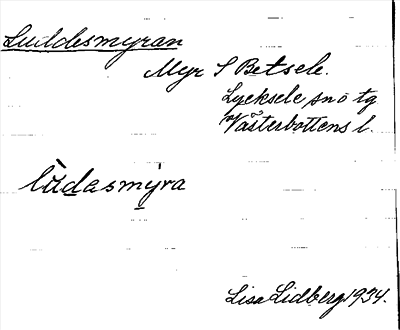 Luddesmyran
Myr S Betsele.
Lycksele sn o tg
Västerbottens l.
lùdasmýra
Lisa Lidberg 1934.